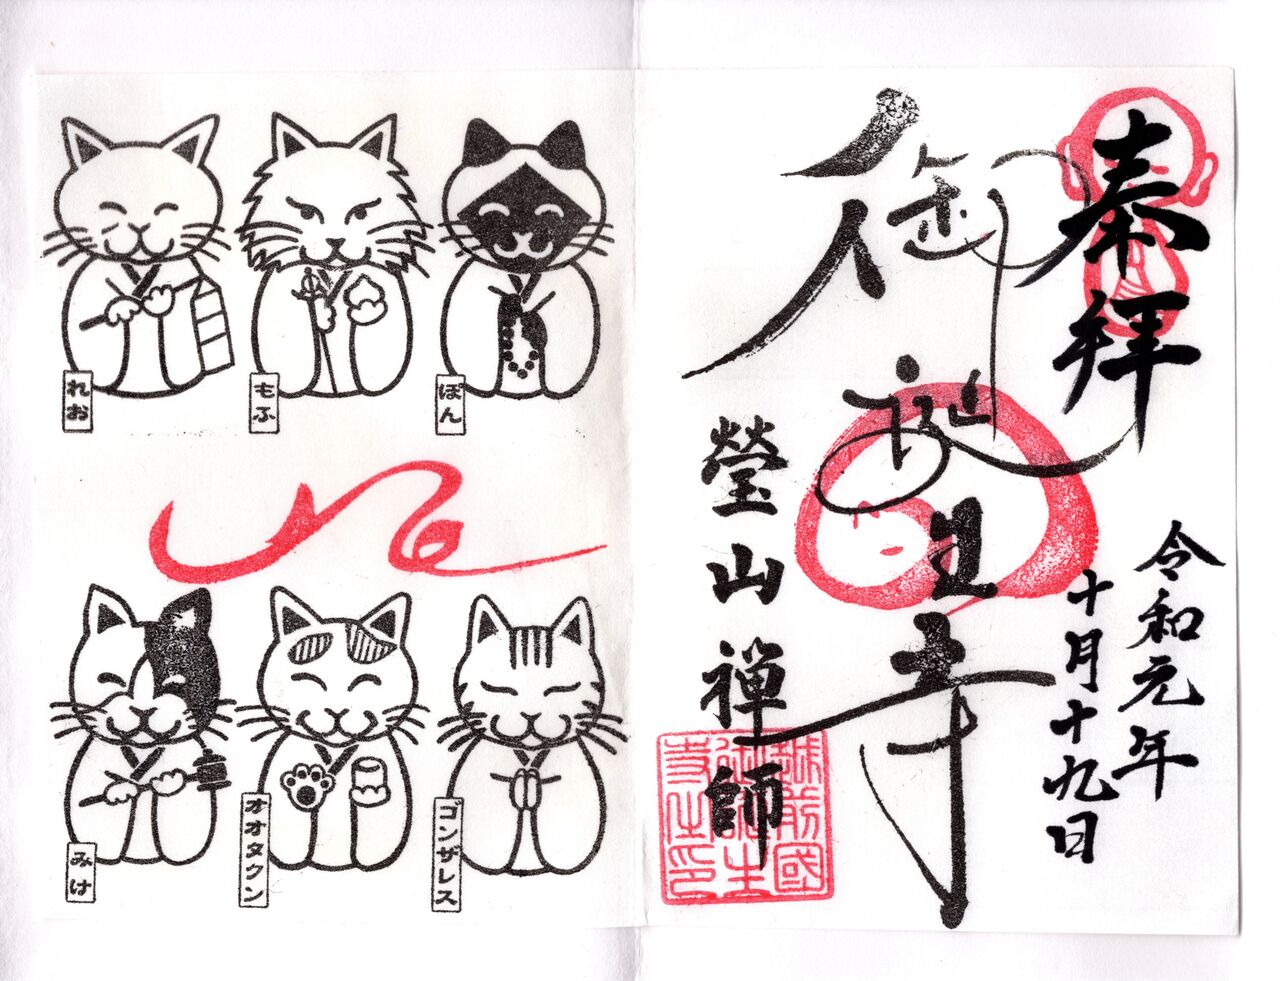 奉拝
御誕生寺
瑩山禅師
令和元年
十月十九日
越前國
御誕生
寺之印
ぽん
もふ
れお
ゴンザレス
オオタクン
みけ